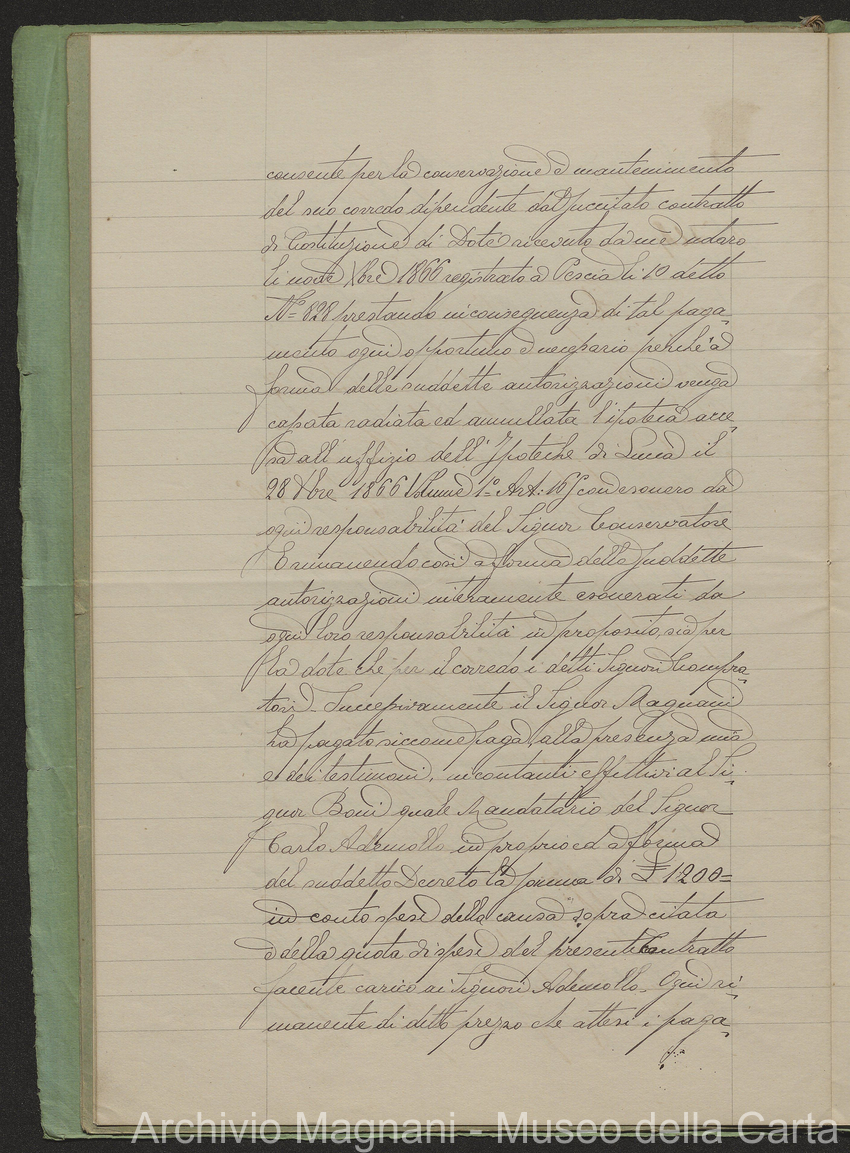 consente per la conservazione e mantenimento
del suo corredo dipendente dal succitato contratto
di Costituzione di Dote ricevuto da me notaro
li nove Xbre 1866 registrato a Pescia li 10 detto
N.º 828 prestando in conseguenza di tal paga-
mento ogni opportuno e necessario perché a
forma delle suddette autorizzazioni venga
cassata radiata ed annullata l'ipoteca acce-
sa all'uffizio dell'Ipoteche di Lucca il
28 Xbre 1866 Volume 1º Art: 165 con esonero da
ogni responsabilità del Signor Conservatore
E rimanendo così a forma delle suddette
autorizzazioni interamente esonerati da
ogni loro responsabilità in proposito, sia per
la dote che per il corredo i detti Signori Compra-
tori. Successivamente il Signor Magnani
ha pagato siccome paga, alla presenza mia
e dei testimoni, in contanti effettivi al Si-
gnor Boni quale Mandatario del Signor
Carlo Ademollo in proprio ed a forma
del suddetto Decreto la somma di £ 1200=
in conto spese della causa sopra citata
e della quota di spese del presente Contratto
facente carico ai Signori Ademollo. Ogni ri-
manente di detto prezzo che attesi i paga-
Archivio Magnani - Museo della Carta